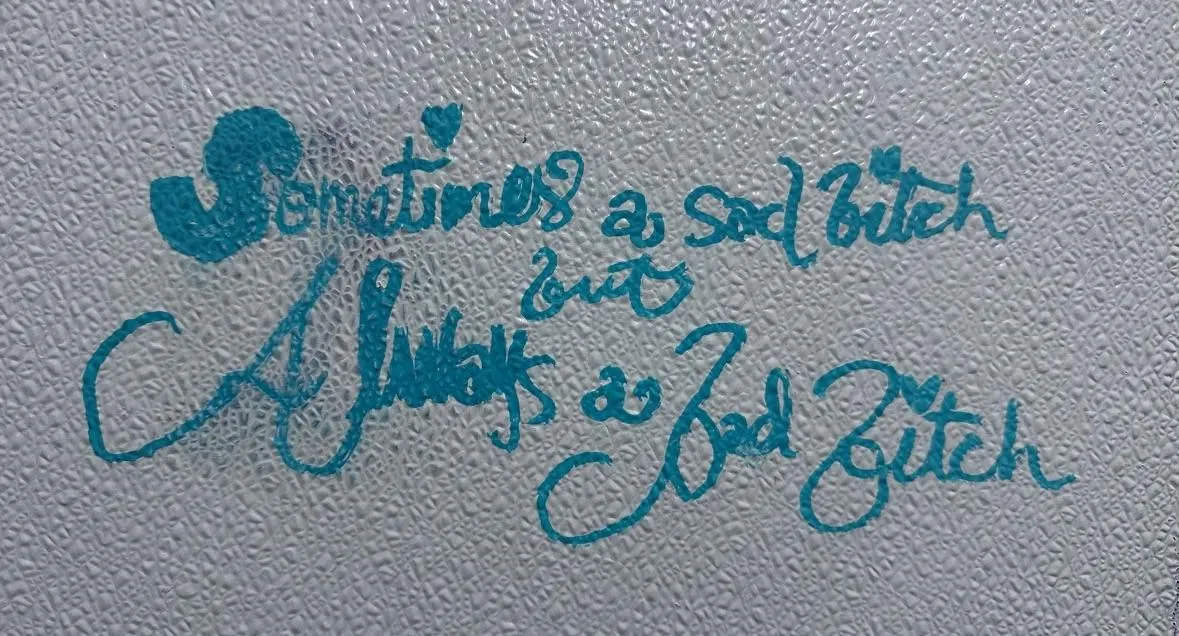 Sometimes a sad bitch
but
Always a bad bitch